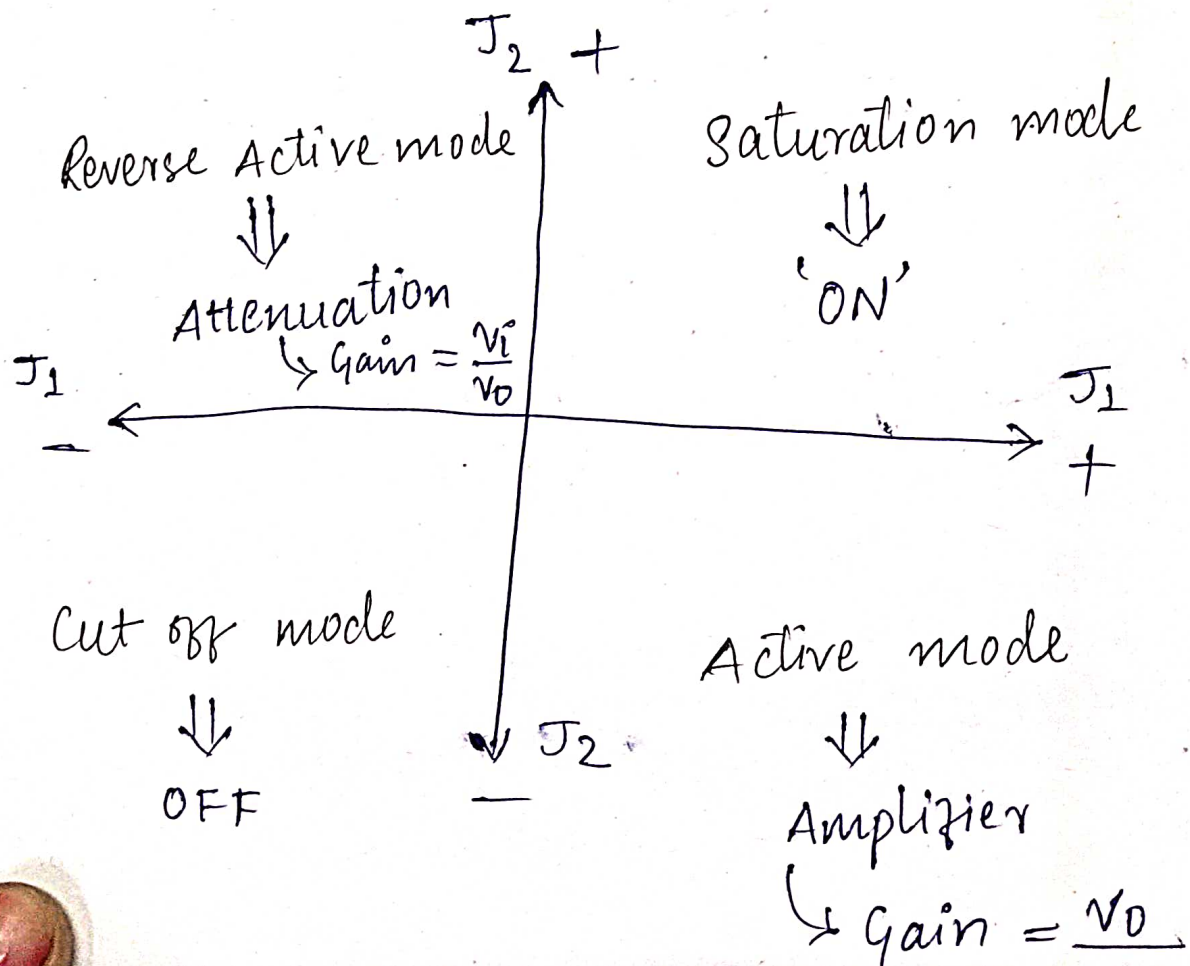 J2 +
Reverse Active mode
⇓
Attenuation
↳ Gain = Vi/Vo
Saturation mode
⇓
'ON'
J1
−
J1
+
Cut off mode
⇓
OFF
J2
−
Active mode
⇓
Amplifier
↳ Gain = Vo